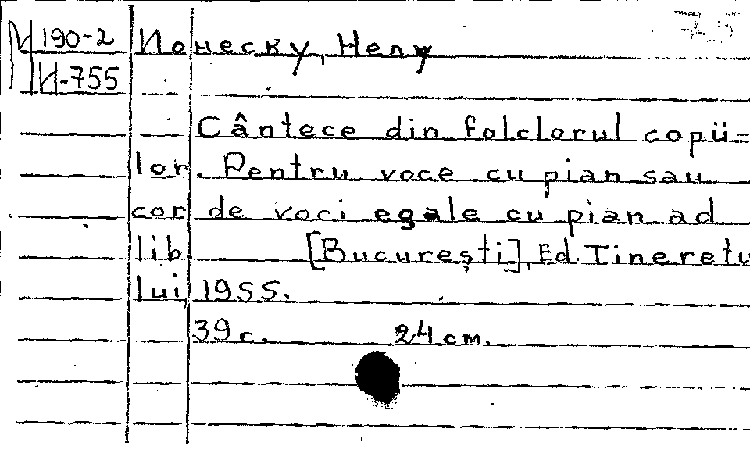 М 190-2
И-755
Ионеску, Нелу
Cântece din folclorul copii=
lor. Pentru voce cu pian sau
cor de voci egale cu pian ad
lib [Bucureşti], Ed. Tineretu
lui, 1955.
39 c. 24 cm.